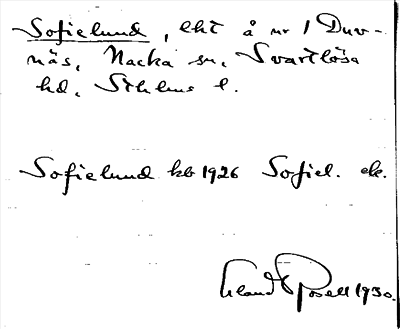 Sofielund, lht å nr 1 Duv-
näs, Nacka sn, Svartlösa
hd, Sthlms l.
Sofielund kb 1926 Sofiel. ek.
Rosell 1930.